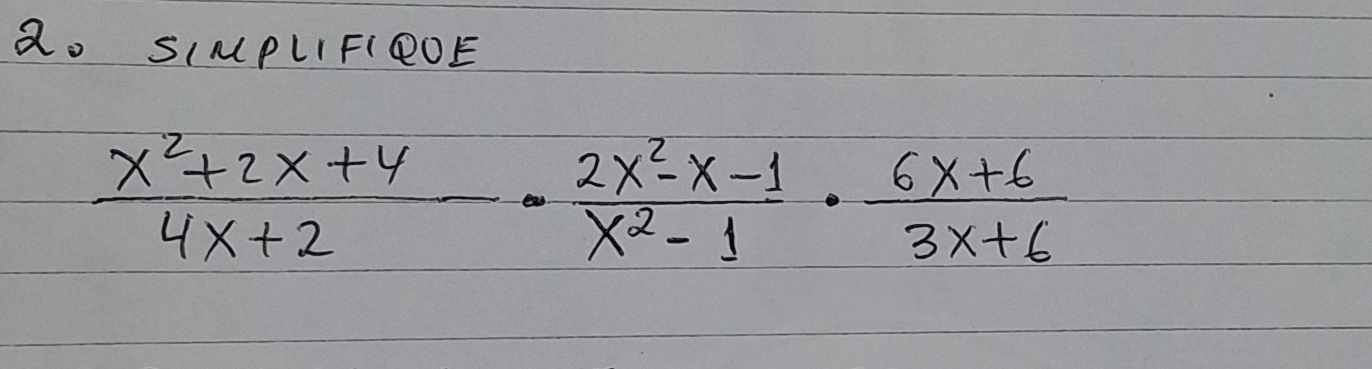 2. SIMPLIFIQUE
x²+2x+4 / 4x+2 · 2x²-x-1 / x²-1 · 6x+6 / 3x+6